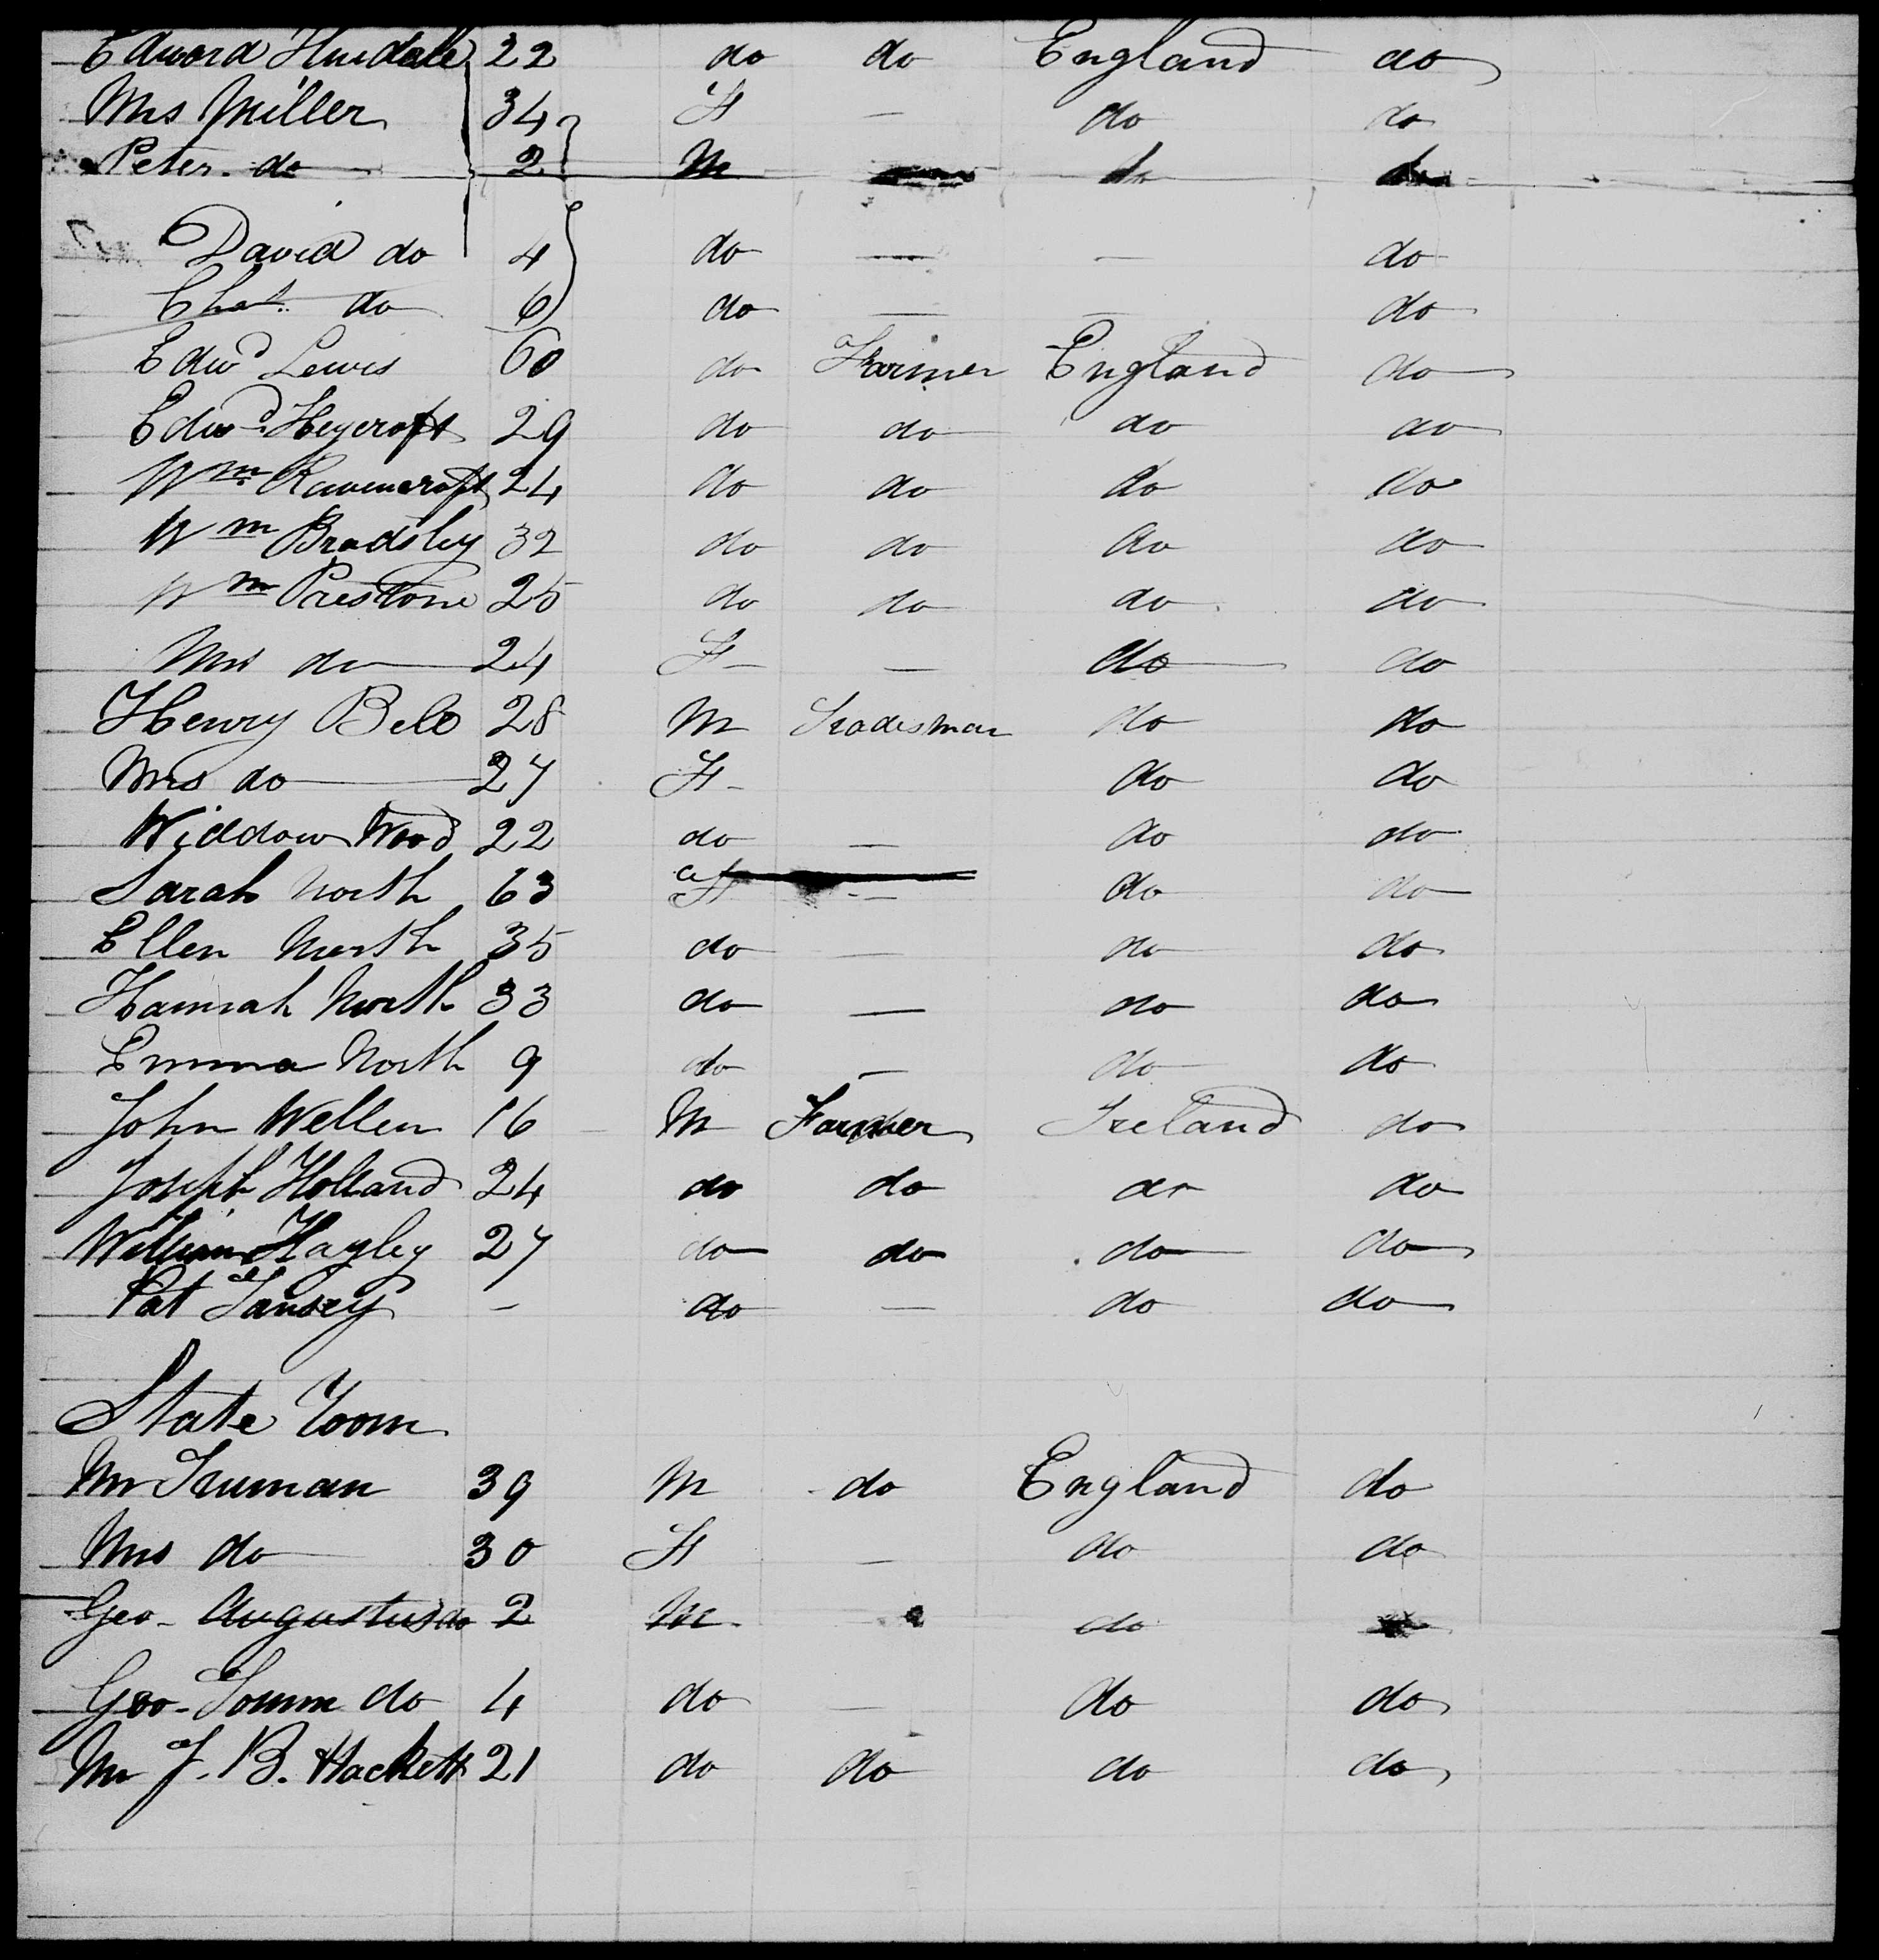 Edward Hindale 22 do do England do
Mrs Miller 34 F — do do
Peter do 2 M do do
David do 4 do — — do
Chas. do 6 do — — do
Edwd Lewis 60 do Farmer England do
Edwd. Heycroft 29 do do do do
Wm. Ravencroft 24 do do do do
Wm Bradsley 32 do do do do
Wm Prestone 25 do do do do
Mrs do 24 F — do do
Henry Bell 28 M Tradesman do do
Mrs do 27 F do do
Widdow Wood 22 do — do do
Sarah North 63 F — do do
Ellen North 35 do — do do
Hannah North 33 do — do do
Emma North 9 do — do do
John Wellen 16 M Farmer Ireland do
Joseph Holland 24 do do do do
William Hayley 27 do do do do
Pat Tansey — do — do do
State Room
Mr Truman 39 M do England do
Mrs do 30 F — do do
Geo- Augustus do 2 M do
Geo- do 4 do — do do
Mr J. B. Hackett 21 do do do do